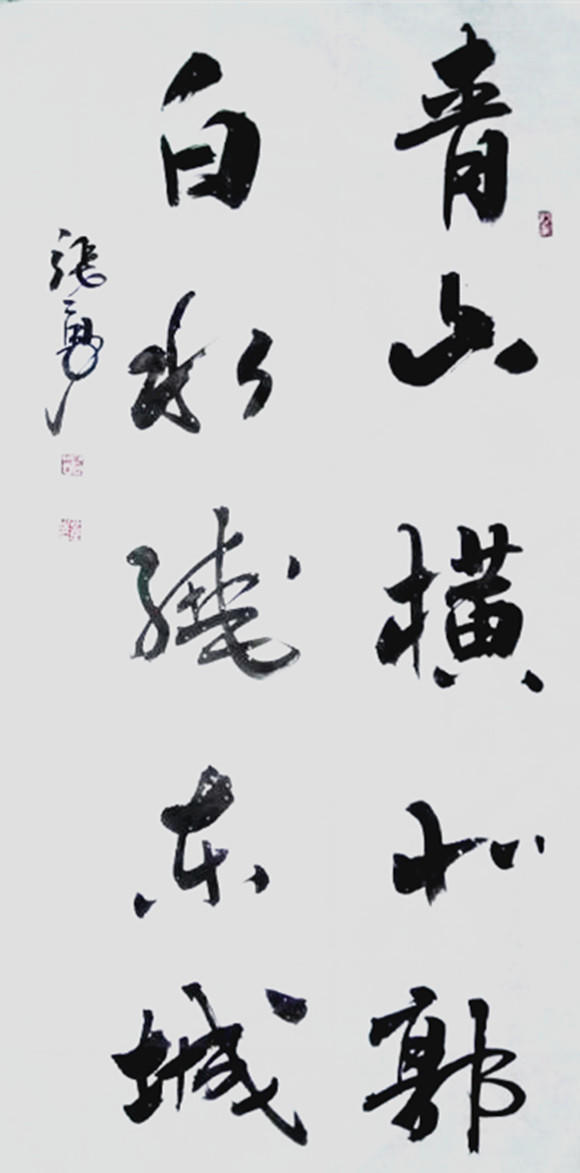 青山横北郭
白水绕东城
张勇